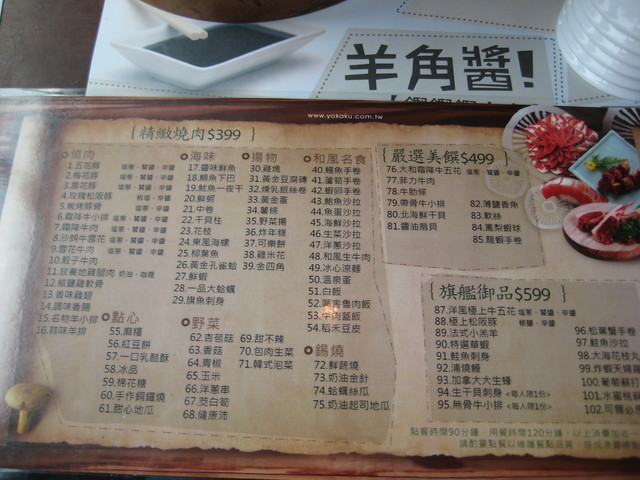 羊角醬!
www.yokaku.com.tw
{精緻燒肉$399}
燒肉
1.五花豚 塩蔥、醬醬、辛醬
2.梅花豚
3.雪花豚
4.玫瑰松阪豚
5.嫩烤豚骨
6.霜降牛小排
7.霜降牛肉
8.沙朗牛雪花
9.雪花牛肉
10.骰子牛肉
11.放養地雞腿肉 奶油、咖哩
12.椒鹽雞軟骨
13.香味雞翅
14.調味香腸
15.名物羊小排
16.蒜味羊排
點心
55.麻糬
56.紅豆餅
57.一口乳酪酥
58.冰品
59.棉花糖
60.手作銅鑼燒
61.甜心地瓜
海味
17.鹽味鮮魚
18.鯛魚下巴
19.魷魚一夜干
20.鮮蚵
21.中卷
22.干貝柱
23.花枝
24.樂風海螺
25.柳葉魚
26.黃金孔雀蛤
27.鮮蝦
28.一品大蛤蠣
29.旗魚刺身
野菜
62.杏菇菇
63.香菇
64.青椒
65.玉米
66.洋蔥串
67.茭白筍
68.健康沛
69.甜不辣
70.包肉生菜
71.韓式泡菜
揚物
30.雞塊
31.黃金豆腐磚
32.爆乳銀絲卷
33.黃金蛋
34.薯條
35.野菜揚
36.炸年糕
37.可樂餅
38.雞米花
39.金四角
和風名食
40.鰻魚手卷
41.蘆筍手卷
42.蝦卵手卷
43.鮑魚沙拉
44.魚蛋沙拉
45.海鮮沙拉
46.生菜沙拉
47.洋蔥沙拉
48.和風生牛肉
49.冰心涼麵
50.溫泉蛋
51.白飯
53.牛肉蓋飯
54.稻禾豆皮
錫燒
72.鮮蔬燒
73.奶油金針
74.蛤蠣絲瓜
75.奶油起司地瓜
{嚴選美饌$499}
76.大和霜降牛五花 塩蔥、醬醬、辛醬
77.菲力牛肉
78.牛肋條
79.帶骨牛小排
80.北海鮮干貝
81.醬油扇貝
82.薄鹽香魚
83.軟絲
84.鳳梨蝦球
85.龍蝦手卷
{旗艦御品$599}
87.洋風極上牛五花
88.極上松阪豚
89.法式小羔羊
90.特選草蝦
91.鮭魚刺身
92.浦燒鰻
93.加拿大大生蠔
94.生干貝刺身 <每人限1份>
95.無骨牛小排 <每人限1份>
96.松葉蟹手卷
97.鮭魚沙拉
98.大海花枝丸
99.炸蝦天婦羅
100.葡萄蘇打
101.水蜜桃
102.可爾必
點餐時間90分鐘，用餐時間120分鐘，以上消費加收一
請酌量點餐以維護餐點品質